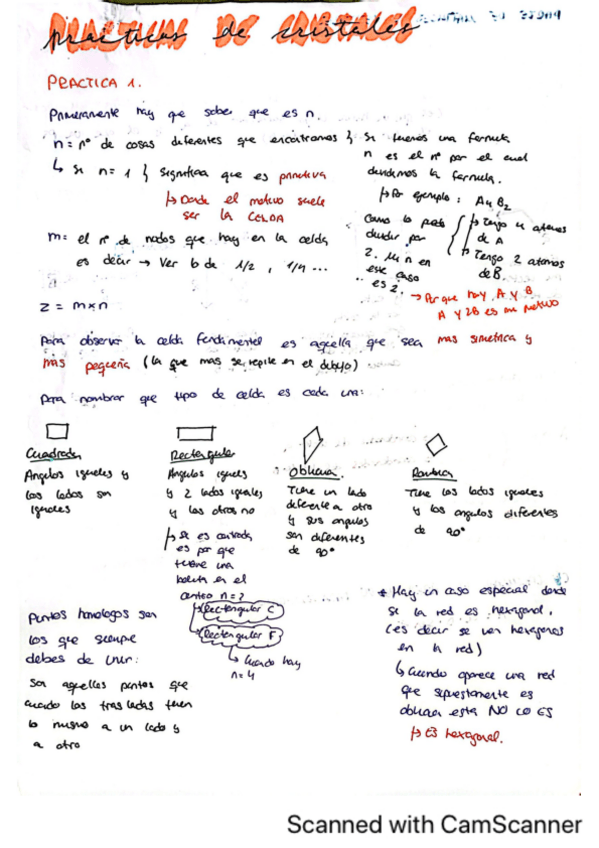 practicas de cristales
PRACTICA 1.
Primeramente hay que saber que es n.
n = nº de cosas diferentes que encontramos } Si tenemos una formula
n es el nº por el cual
dividimos la formula.
↳ Si n = 1 } significa que es primitiva
↳ Donde el motivo suele
ser LA CELDA
↳ Por ejemplo: A4B2
Como lo puedo
dividir por
2. Mi n en
ese caso
es 2.
↳ Tengo 4 atomos
de A
↳ Tengo 2 atomos
de B.
→ Porque hay A y B
A y 2B es un motivo
m = el nº de nodos que hay en la celda
es decir → Ver b de 1/2, 1/4 ...
Z = m×n
Para observar la celda fundamental es aquella que sea mas simetrica y
mas pequeña (la que mas se repite en el dibujo)
Para nombrar que tipo de celda es cada una:
Cuadrada
Angulos iguales y
los lados son
iguales
Rectangular
Angulos iguales
y 2 lados iguales
y los otros no
↳ Si es centrada
es por que
tiene una
bolita en el
centro n=2
Rectangular C
Rectangular F
↳ Cuando hay
n=4
Oblicua.
Tiene un lado
diferente a otro
y sus angulos
son diferentes
de 90°
Rombica
Tiene los lados iguales
y los angulos diferentes
de 90°
Puntos homologos son
los que siempre
debes de unir:
Son aquellos puntos que
cuando los trasladas tienen
lo mismo a un lado y
a otro
* Hay un caso especial donde
si la red es hexagonal.
(es decir se ven hexagonos
en la red)
↳ Cuando aparece una red
que supuestamente es
oblicua esta NO LO ES
↳ Es hexagonal.
Scanned with CamScanner